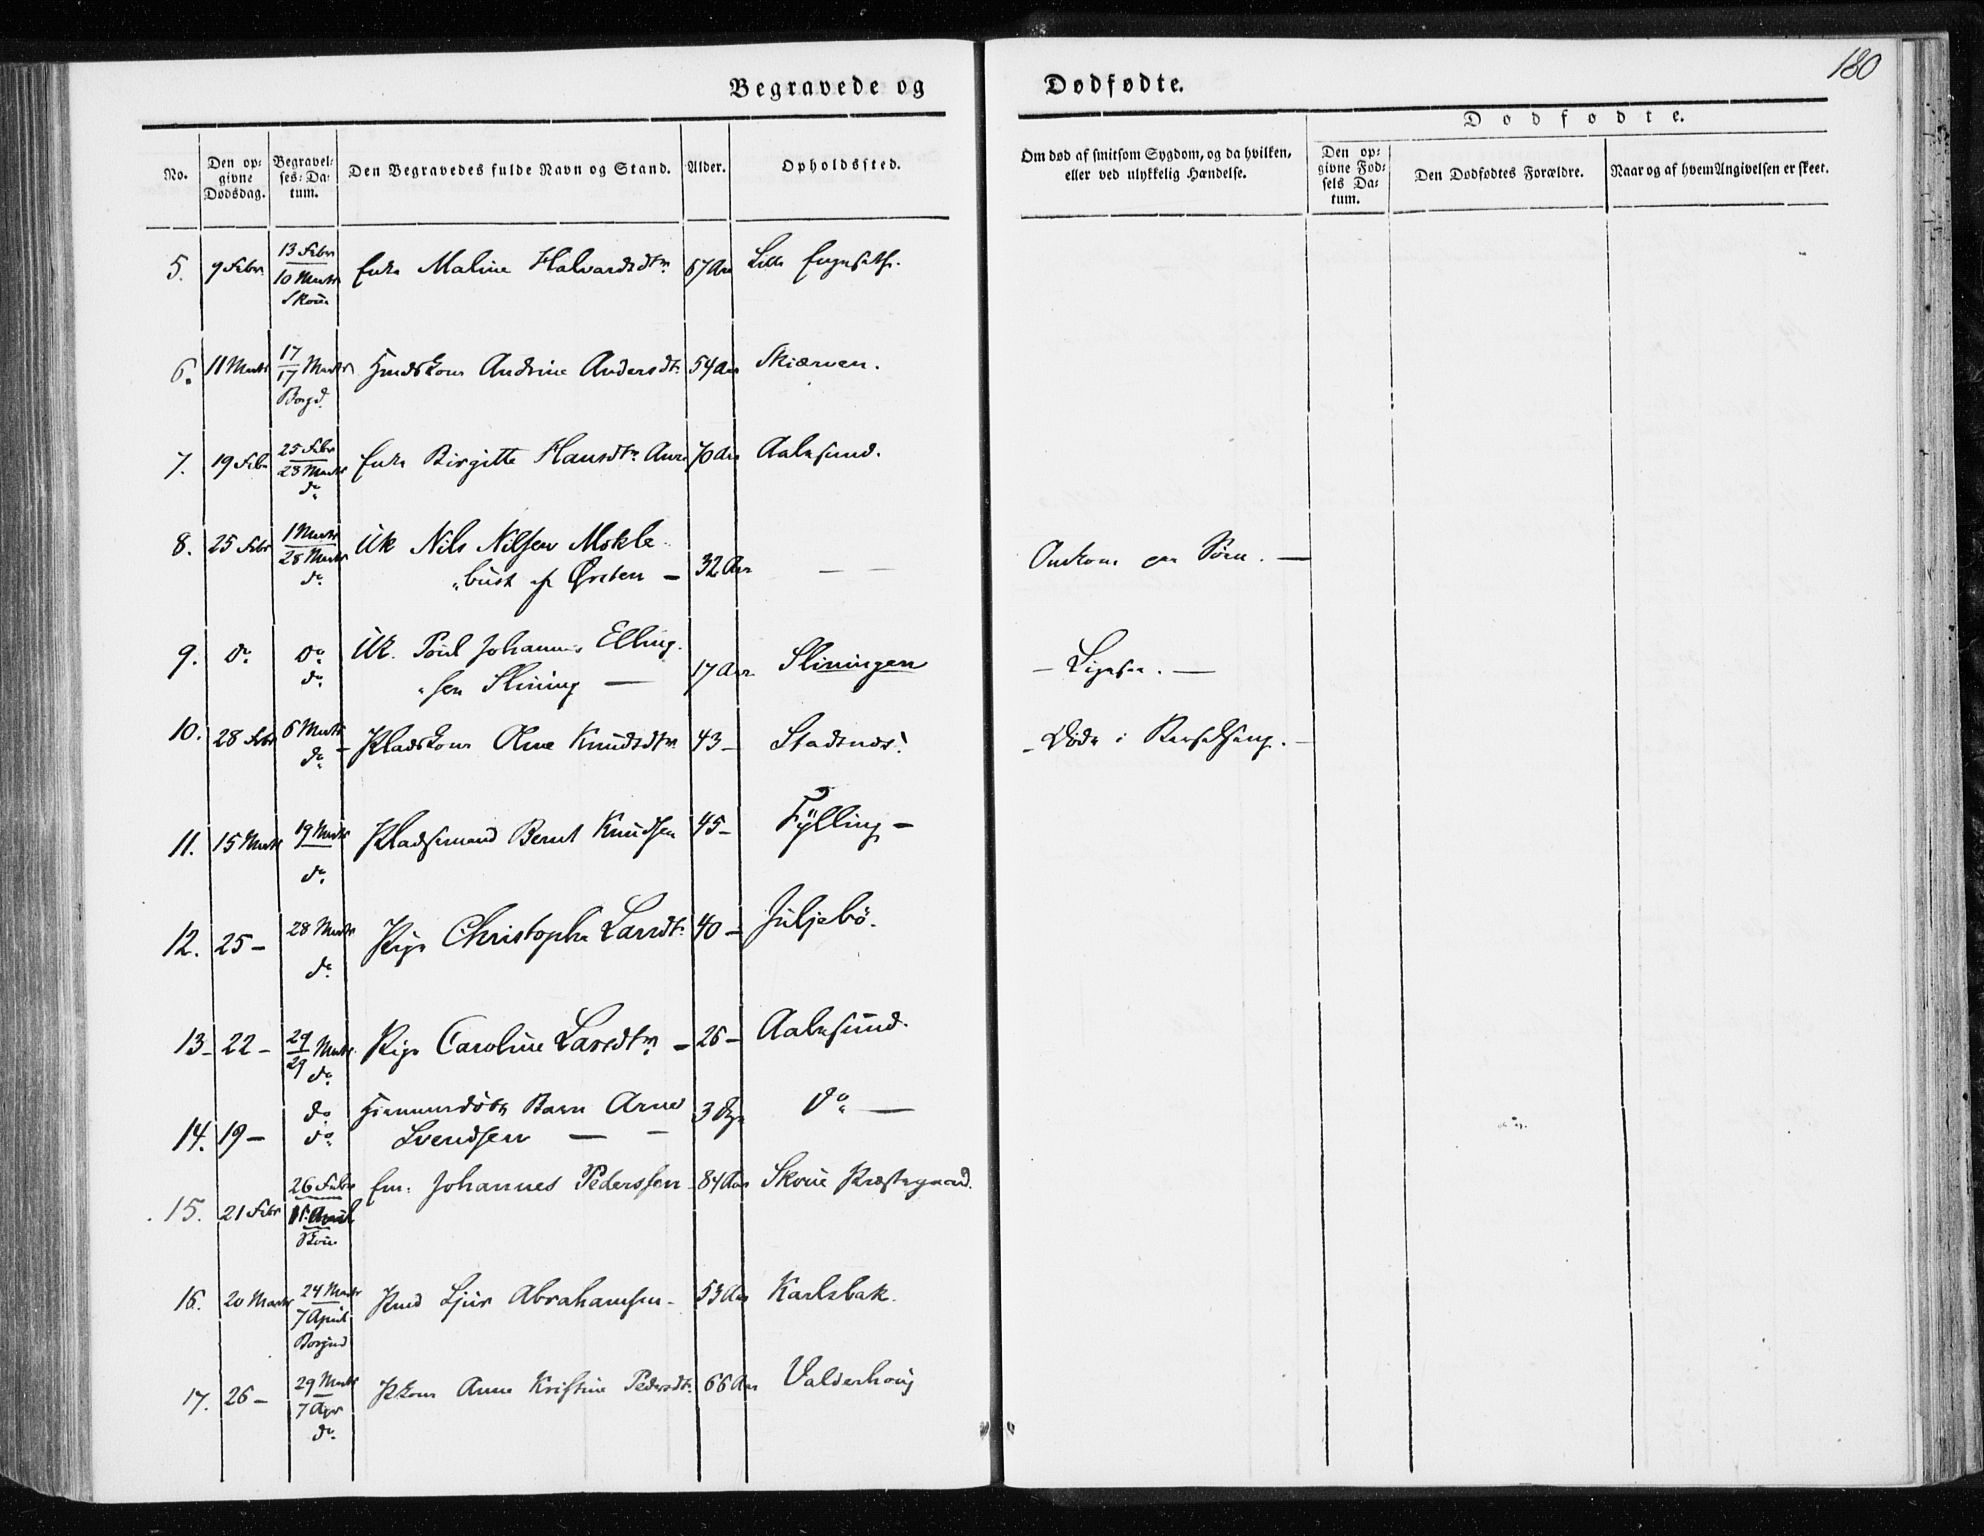 180
Begravede og Dødfødte.
No.
Den op-
givne
Dødsdag.
Begravel-
ses-Da-
tum.
Den Begravedes fulde Navn og Stand.
Alder.
Opholdssted.
Om død af smitsom Sygdom, og da hvilken,
eller ved ulykkelig Hændelse.
Dødfødte.
Den op-
givne Fød-
sels Da-
tum.
Den Dødfødtes Forældre.
Naar og af hvem Angivelsen er skeet.
5. 9 Febr 13 Febr Enke Maline Halvardsdtr. 67 Aar Lille
10 Marts
Skoue
6. 11 Marts 17 Marts Andrine Andersdtr. 54 Aar Skiærven.
17
Borgd.
7. 19 Feb 25 Febr Enke Birgitte Hansdtr. 70 Aar Aalesund.
23 Marts
do.
8. 25 Febr 1 Marts Uk Nils Nilsen Mokle- Omkom paa Søen. —
28 Marts
do. bust af — 32 Aar — —
9. do. do. Uk. Poul Johannes Elling-
do. sen Slining — 17 Aar Sliningen — Ligesaa. —
10. 28 Febr 6 Marts Pladskone Oline Knudsdtr. 43 — Stadsnes. — Døde i Barselseng. —
do.
11. 15 Marts 19 Marts Pladsmand Bernt Knudsen 45 — Fylling —
do.
12. 25 — 28 Marts Pige Christophe Larsdtr. 40 — Puljebö.
do.
13 — 22 — 29 Marts Pige Caroline Larsdtr. — 26 — Aalesund.
29
do.
14. 19 — do. Hjemmedøbt Barn Arne 3 Dge do. —
do. Svendsen — —
15. 21 Febr 26 Febr Em. Johannes Pederssen 84 Aar Skoue Præstegaard.
April
Skoue
16. 20 Marts 24 Marts Pmd Sjur Abrahamsen — 53 Aar Karlsbak.
7 April
Borgund
17. 26 — 29 Marts Pkone Anne Kristine Pedersdtr. 66 Aar Valderhoug
7 Apr
do.